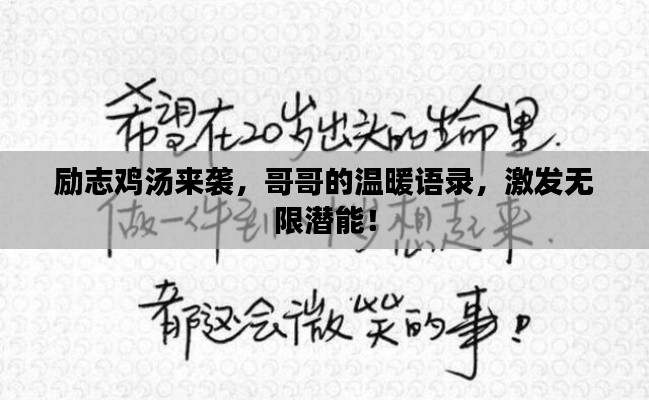 希望在20岁出头的生命里.
励志鸡汤来袭，哥哥的温暖语录，激发无
限潜能！
做一件到 岁想起来.
都还会微笑的事!